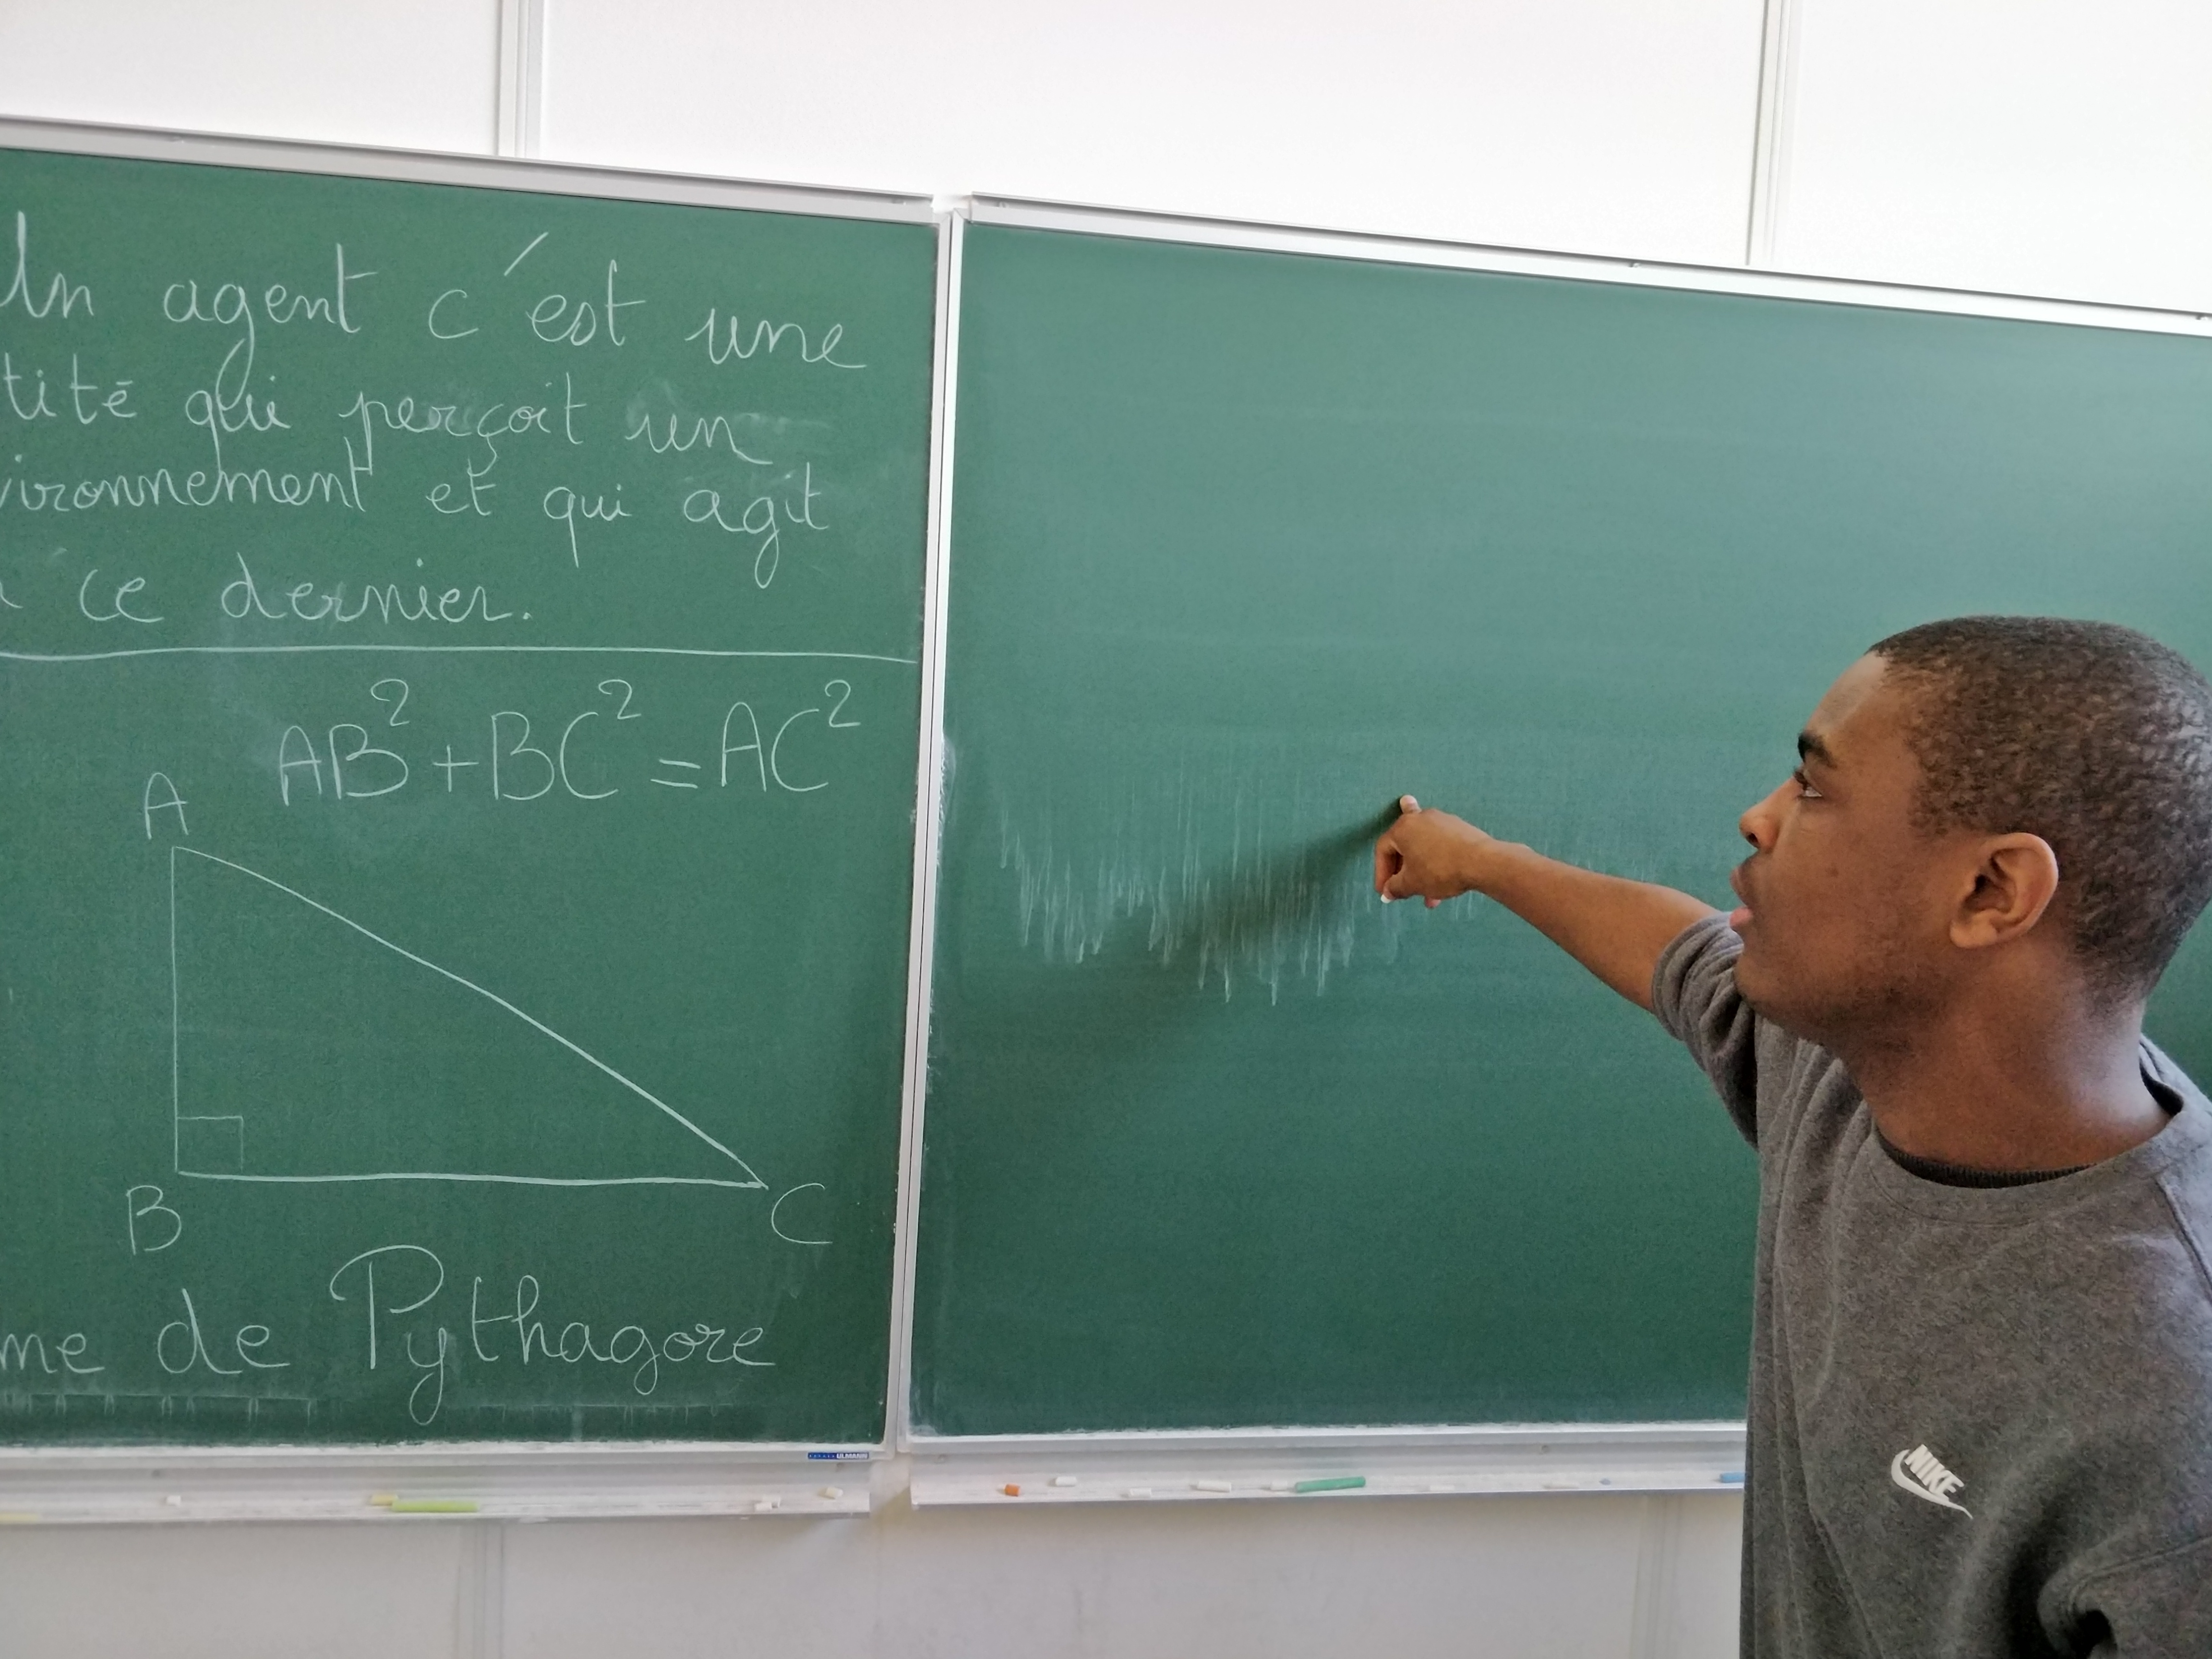 Un agent c'est une
tité qui perçoit un
vironnement et qui agit
ce dernier.
AB² + BC² = AC²
A
B
C
me de Pythagore
ULMANN
NIKE